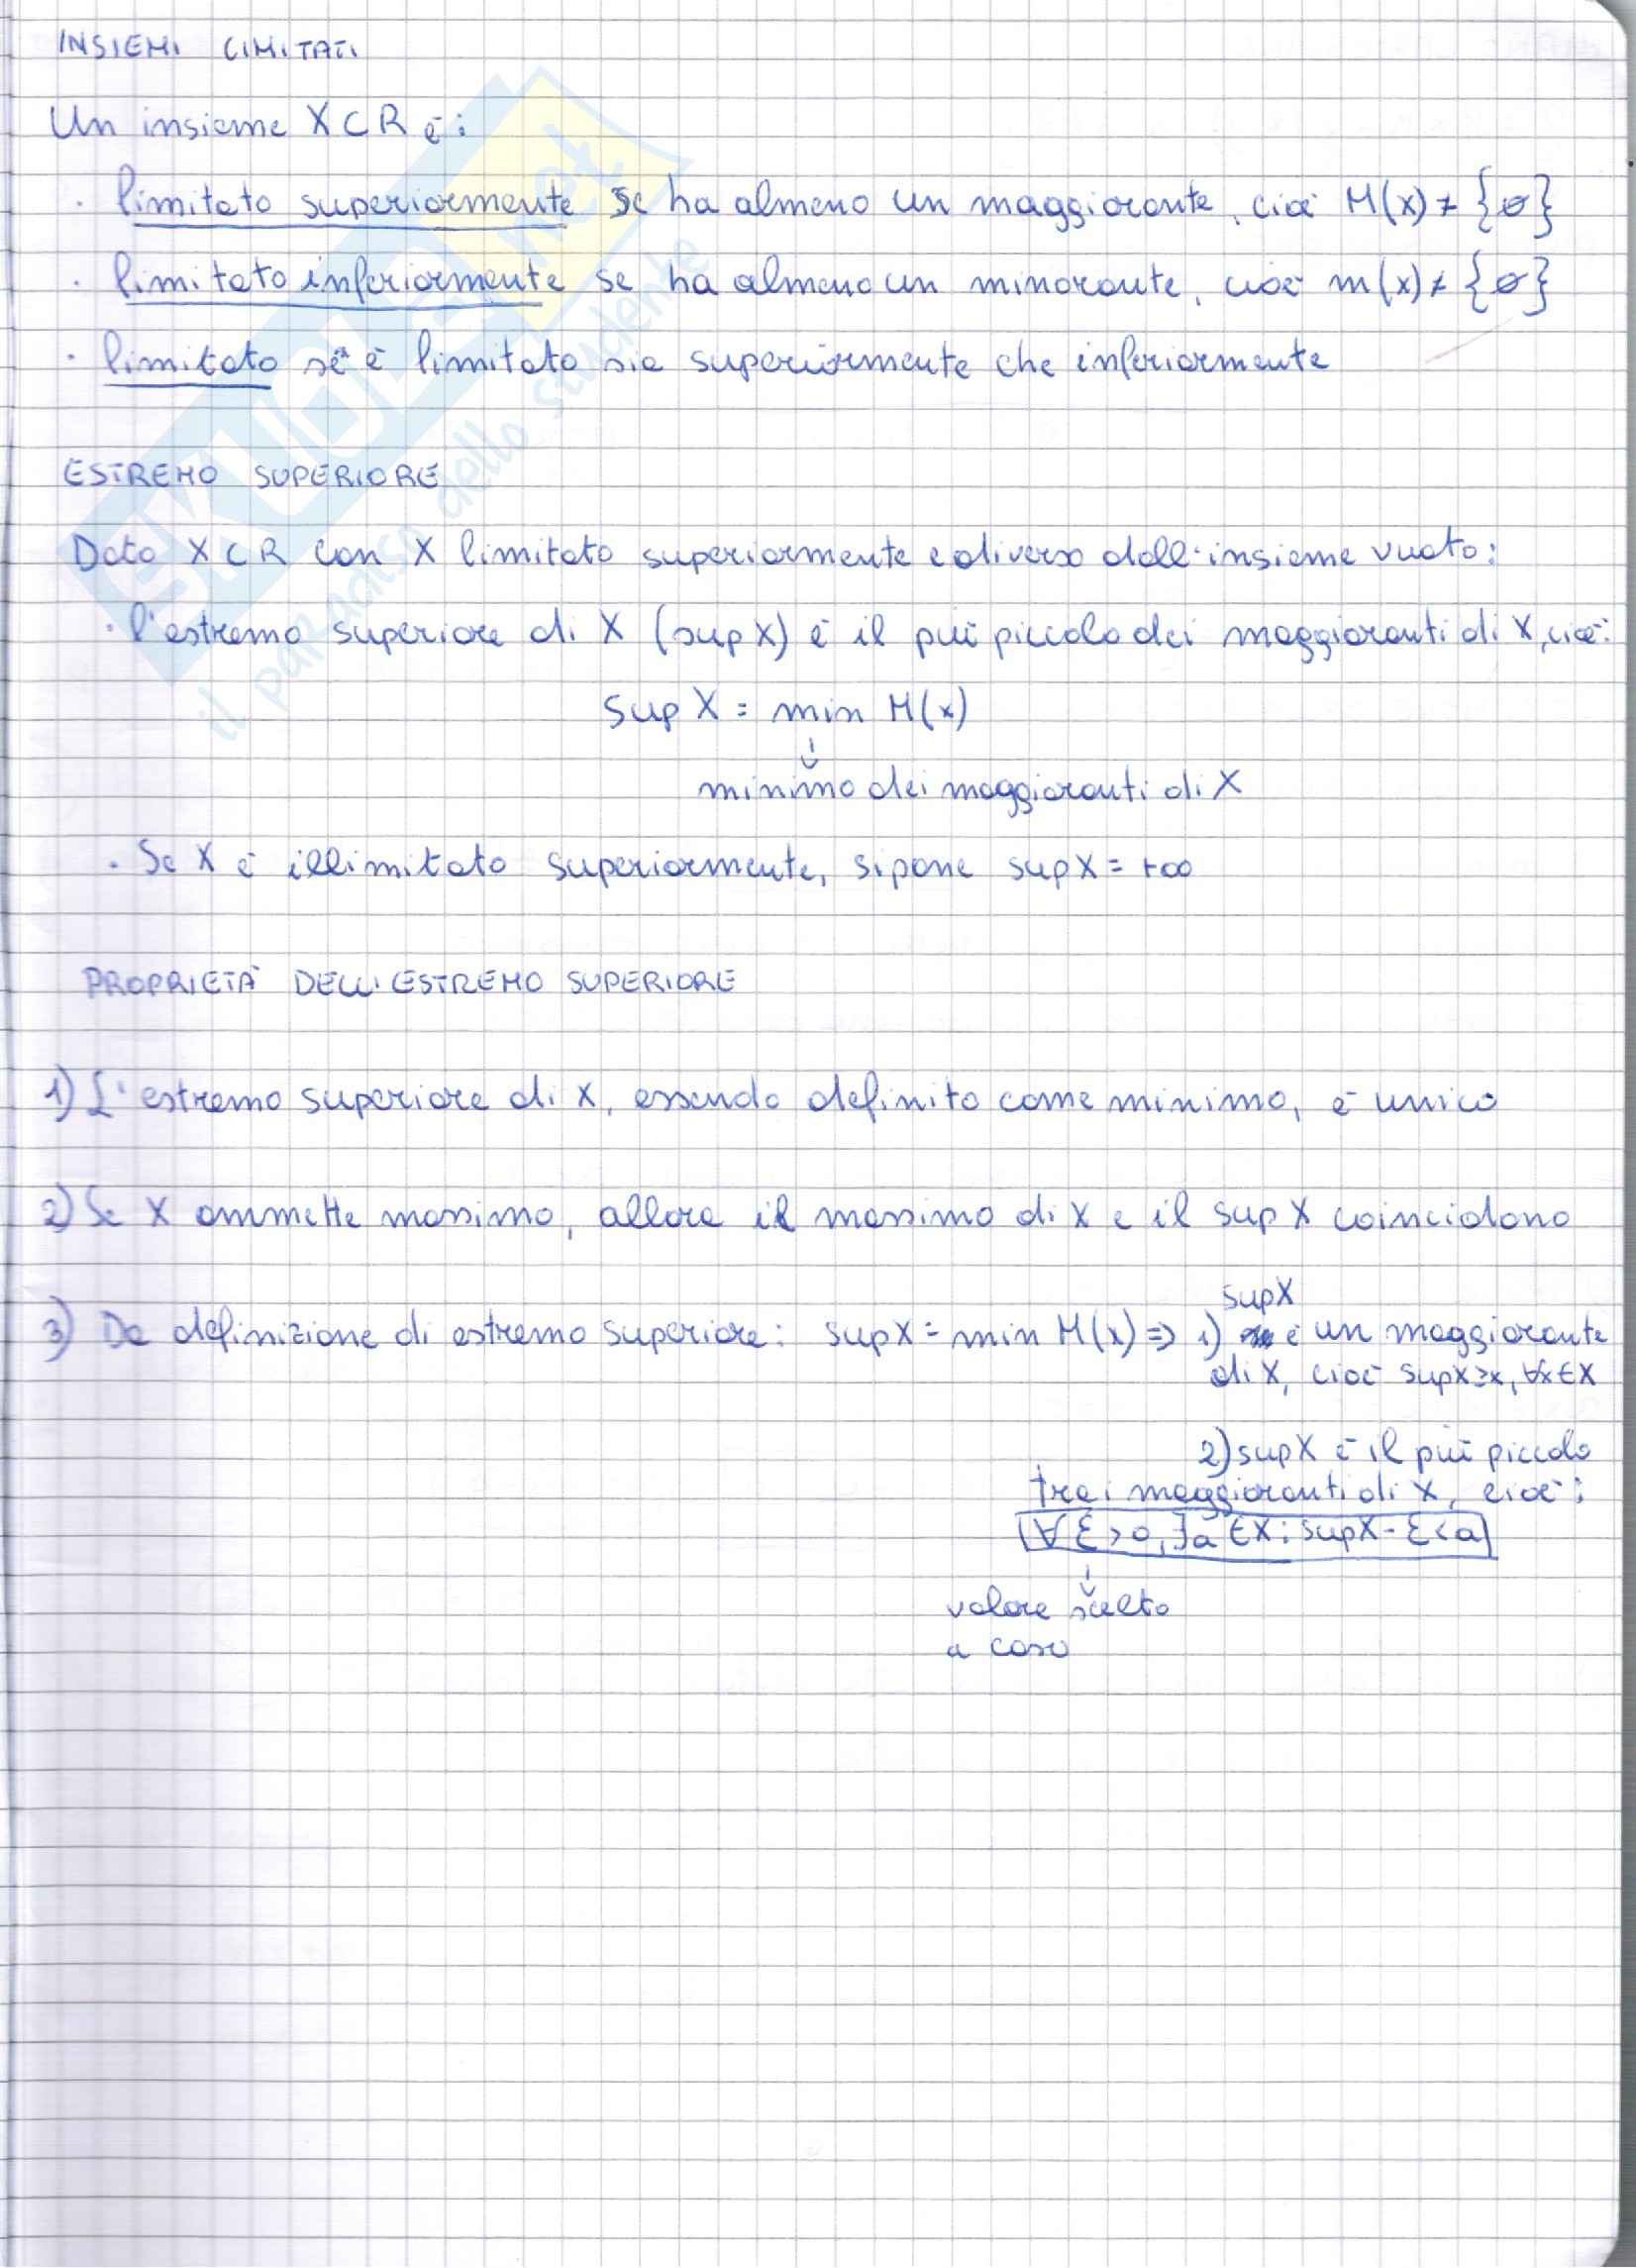 INSIEMI LIMITATI
Un insieme X⊂R è:
· limitato superiormente se ha almeno un maggiorante, cioè M(x) ≠ {ø}
· limitato inferiormente se ha almeno un minorante, cioè m(x) ≠ {ø}
· limitato se è limitato sia superiormente che inferiormente
ESTREMO SUPERIORE
Dato X⊂R con X limitato superiormente e diverso dall'insieme vuoto:
· l'estremo superiore di X (sup X) è il più piccolo dei maggioranti di X, cioè:
Sup X = min M(x)
↓
minimo dei maggioranti di X
· Se X è illimitato superiormente, si pone sup X = +∞
PROPRIETÀ DELL'ESTREMO SUPERIORE
1) L'estremo superiore di X, essendo definito come minimo, è unico
2) Se X ammette massimo, allora il massimo di X e il sup X coincidono
supX
3) Da definizione di estremo superiore: supX = min M(x) => 1) è un maggiorante
di X, cioè supX≥x, ∀x∈X
2) supX è il più piccolo
tra i maggioranti di X, cioè:
∀ε>0, ∃a∈X: supX-ε<a
↓
valore scelto
a caso
SKUOLA.net
il paradiso dello studente